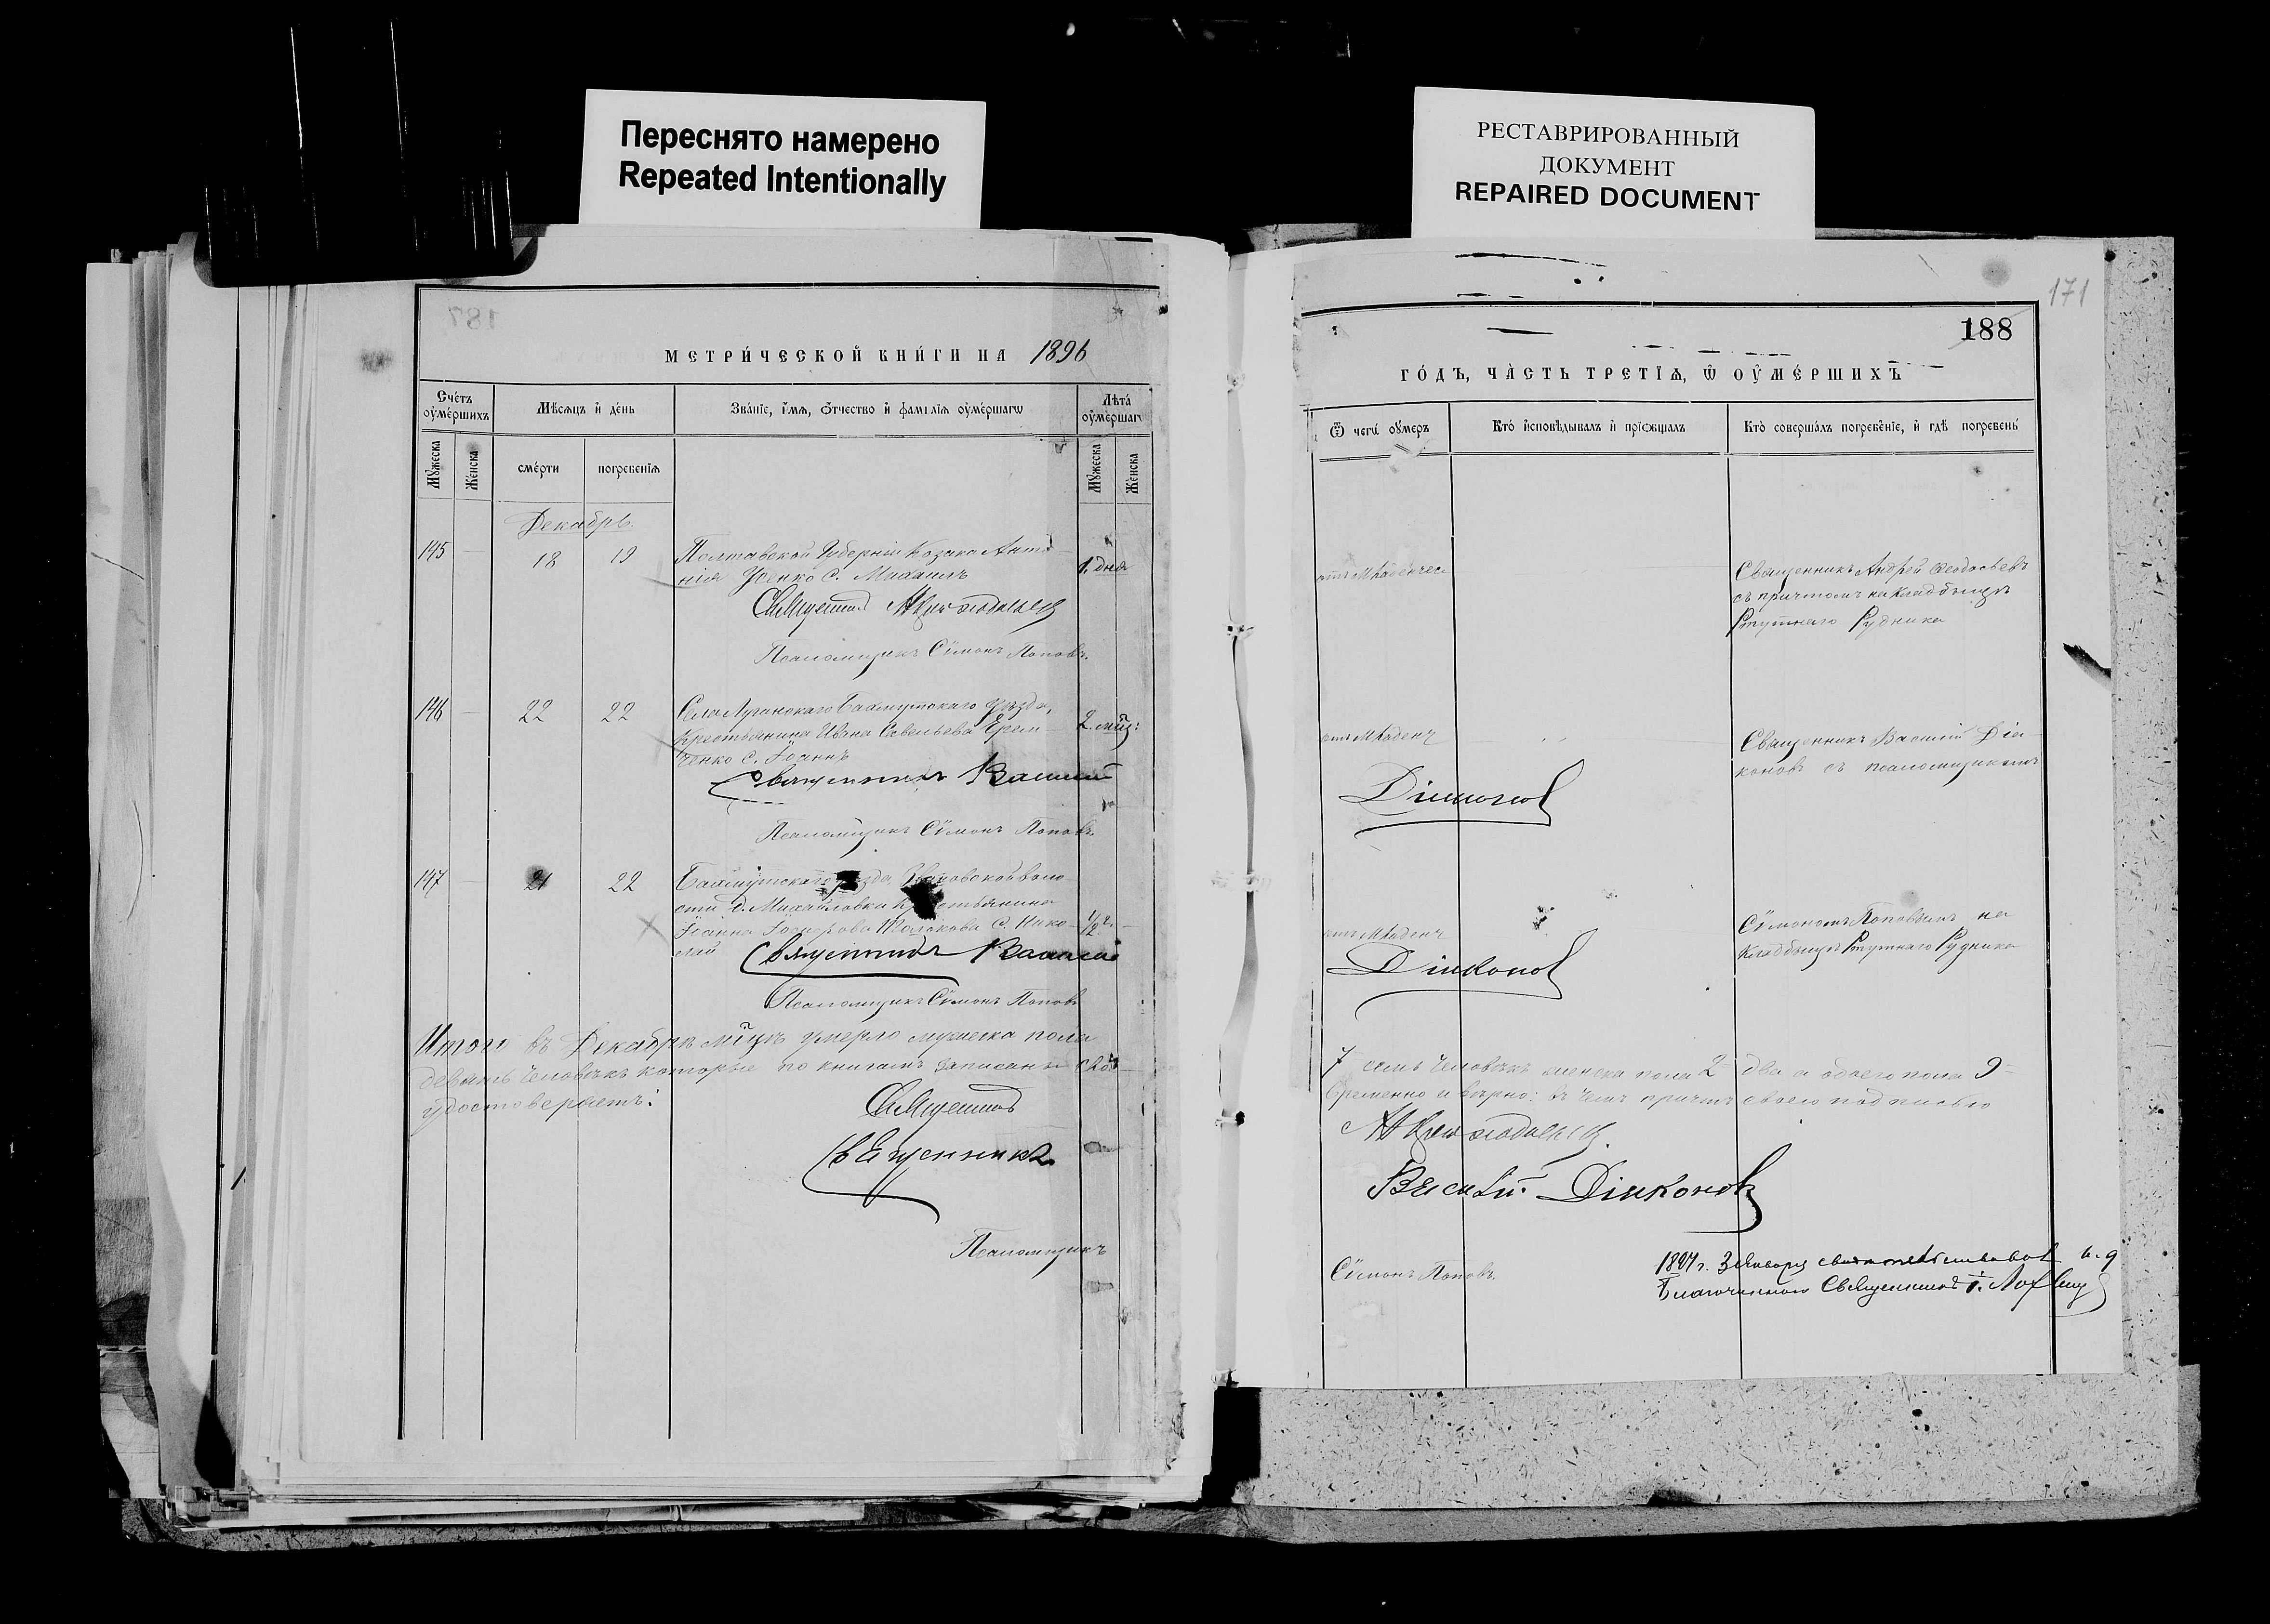 Переснято намерено
Repeated Intentionally
РЕСТАВРИРОВАННЫЙ
ДОКУМЕНТ
REPAIRED DOCUMENT
187
МЕТРИ́ЧЕСКОЙ КНИ́ГИ НА 1896
Сче́тъ оу҆ме́ршихъ
Мѣ́сѧцъ и҆ де́нь
Зва́нїе, и҆́мѧ, ѻ҆́тчество и҆ фамилїѧ оу҆ме́ршагѡ
Лѣта́ оу҆ме́ршагѡ
Мꙋ́жеска
Же́нска
сме́рти
погребенїѧ
Мꙋ́жеска
Же́нска
Декабрь.
145 18 19 Полтавской Губерніи Козака Анто-
нія Усенко с. Михаилъ 1. дня
Священник
Псаломщикъ Сімонъ Поповъ.
146 22 22 Села Луганскаго Бахмутскаго уѣзда,
Крестьянина Ивана Савельева Ерем- 2. мѣц:
ченко с. Іоаннъ
Священникъ Василій
Псаломщикъ Сімонъ Поповъ
147 21 22 Бахмутскаго уѣзда, воло-
сти д. Михайловки Крестьянина
Іоанна с. Нико- 1/2 г.
лай
Священникъ Василій
Псаломщикъ Сімонъ Поповъ
Итого въ Декабрѣ мѣцѣ умерло мужеска пола
девять человѣкъ которые по книгамъ записаны
удостоверяетъ:
Священник
Священникъ
Псаломщикъ
171
188
ГО́ДЪ, ЧА́СТЬ ТРЕТЇѦ, Ѡ҆ ОУ҆МЕ́РШИХЪ
Ѿ чегѡ̀ оу҆́меръ
Кто̀ и҆сповѣ́дывалъ и҆ прїѡбща́лъ
Кто̀ соверша́лъ погребе́нїе, и҆ гдѣ̀ погребены̀
отъ Младенчес
Священникъ Андрей Ѳеодосьевъ
съ причтомъ на Кладбищѣ
Ртутнаго Рудника
отъ Младенч
Священникъ Василій Діа-
коновъ съ псаломщикомъ
Діаконов
отъ Младенч
Сімономъ Поповымъ на
Кладбищѣ Ртутнаго Рудника
Діаконов
7 семь человѣкъ женска пола 2 два а обоего пола 9
временно и вѣрно: въ чемъ причтъ своею подписью
Василій Діаконовъ
Сімонъ Поповъ.
1897 г. 3 Января свидѣтельствовал и. д
Благочиннаго Священник І.